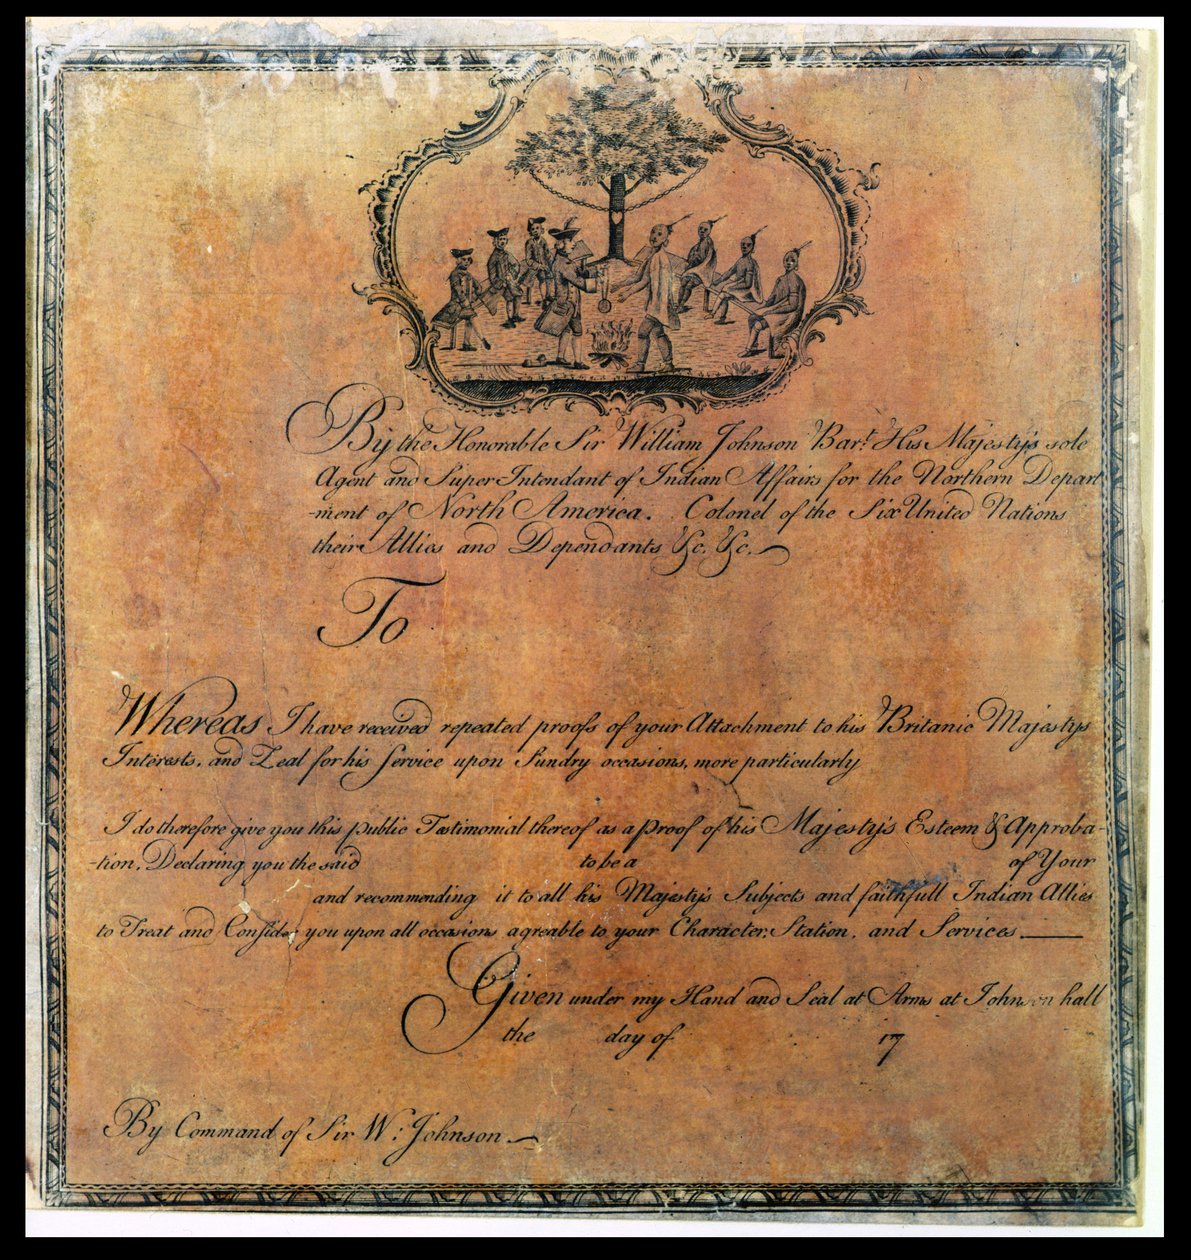 By the Honorable Sir William Johnson Bar.t His Majesty's sole
Agent and Super Intendant of Indian Affairs for the Northern Depart
-ment of North America. Colonel of the Six United Nations
their Allies and Dependants &c. &c.
To
Whereas I have received repeated proofs of your Attachment to his Britanic Majestys
Interests, and Zeal for his Service upon Sundry occasions, more particularly
I do therefore give you this public Testimonial thereof as a Proof of his Majesty's Esteem & Approba-
-tion, Declaring you the said to be a of Your
and recommending it to all his Majesty's Subjects and faithfull Indian Allies
to Treat and Consider you upon all occasions agreable to your Character, Station, and Services
Given under my Hand and Seal at Arms at Johnson hall
the day of 17
By Command of Sir W: Johnson